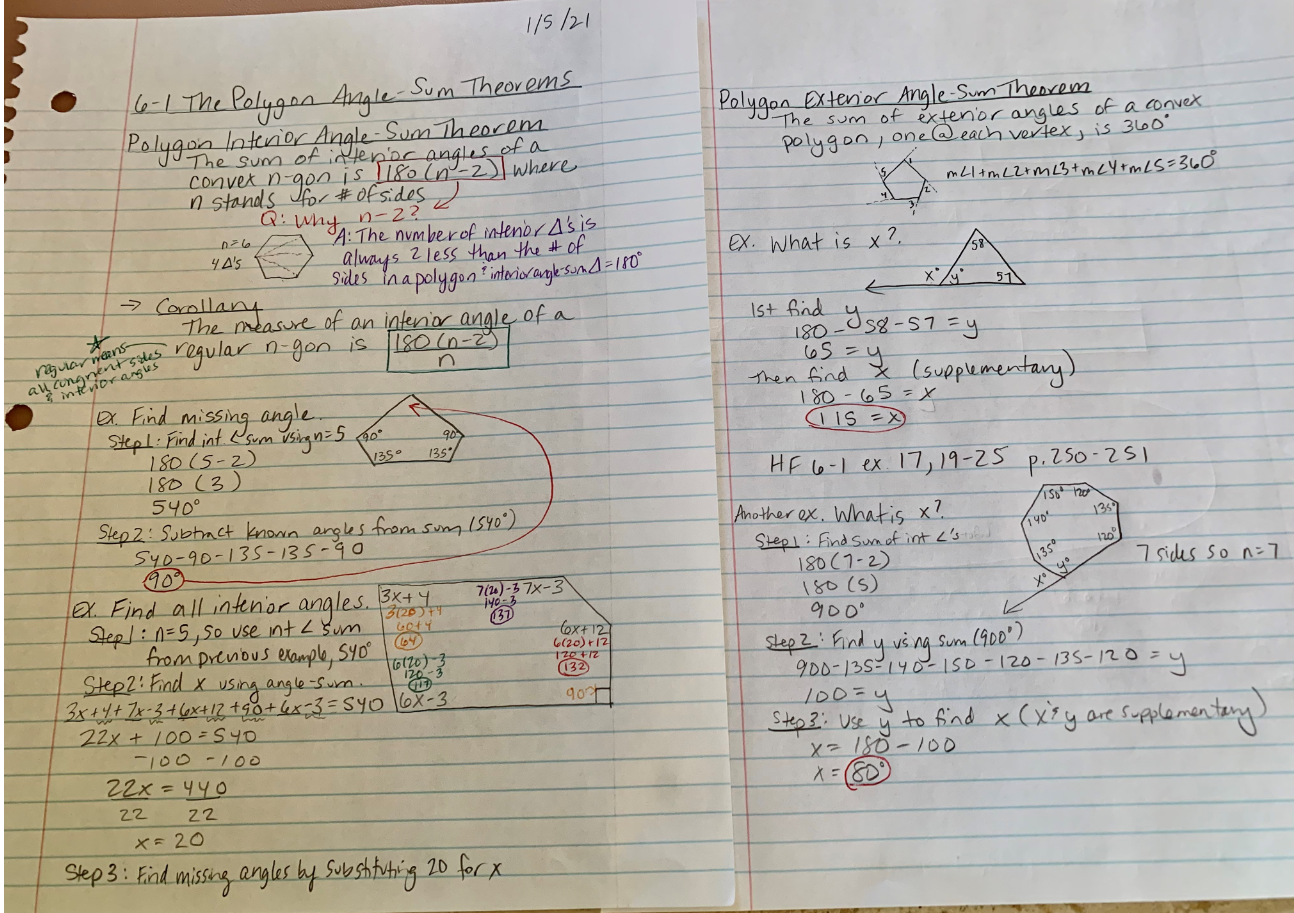 1/5/21
6-1 The Polygon Angle-Sum Theorems
Polygon Interior Angle-Sum Theorem
The sum of interior angles of a
convex n-gon is 180(n-2) where
n stands for # of sides
Q: Why n-2?
n=6
4 Δ's
A: The number of interior Δ's is
always 2 less than the # of
sides in a polygon & interior angle-sum Δ=180°
→ Corollary
The measure of an interior angle of a
regular n-gon is 180(n-2)
n
regular means
all congruent sides
& interior angles
Ex. Find missing angle.
Step 1: Find int ∠ sum using n=5
180(5-2)
180(3)
540°
90° 90
135° 135°
Step 2: Subtract known angles from sum (540°)
540-90-135-135-90
90°
Ex. Find all interior angles.
Step 1: n=5, so use int ∠ sum
from previous example, 540°
Step 2: Find x using angle-sum.
3x+4+7x-3+6x+12+90+6x-3=540
22x + 100 = 540
-100 -100
22x = 440
22 22
x = 20
Step 3: Find missing angles by substituting 20 for x
3x+4
3(20)+4
60+4
64
7(20)-3 7x-3
140-3
137
6x+12
6(20)+12
120+12
132
6(20)-3
120-3
117
6x-3
90
Polygon Exterior Angle-Sum Theorem
The sum of exterior angles of a convex
polygon, one @ each vertex, is 360°
1
2
3
4
5
m∠1+m∠2+m∠3+m∠4+m∠5=360°
Ex. What is x?
58
x° y° 57
1st find y
180-58-57 = y
65 = y
Then find x (supplementary)
180-65 = x
115 = x
HF 6-1 ex. 17, 19-25 p. 250-251
Another ex. What is x?
Step 1: Find sum of int ∠'s
180(7-2)
180(5)
900°
150° 120°
140° 135°
135° 120°
x° y°
7 sides so n=7
Step 2: Find y using sum (900°)
900-135-140-150-120-135-120 = y
100 = y
Step 3: Use y to find x (x & y are supplementary)
x = 180-100
x = 80°